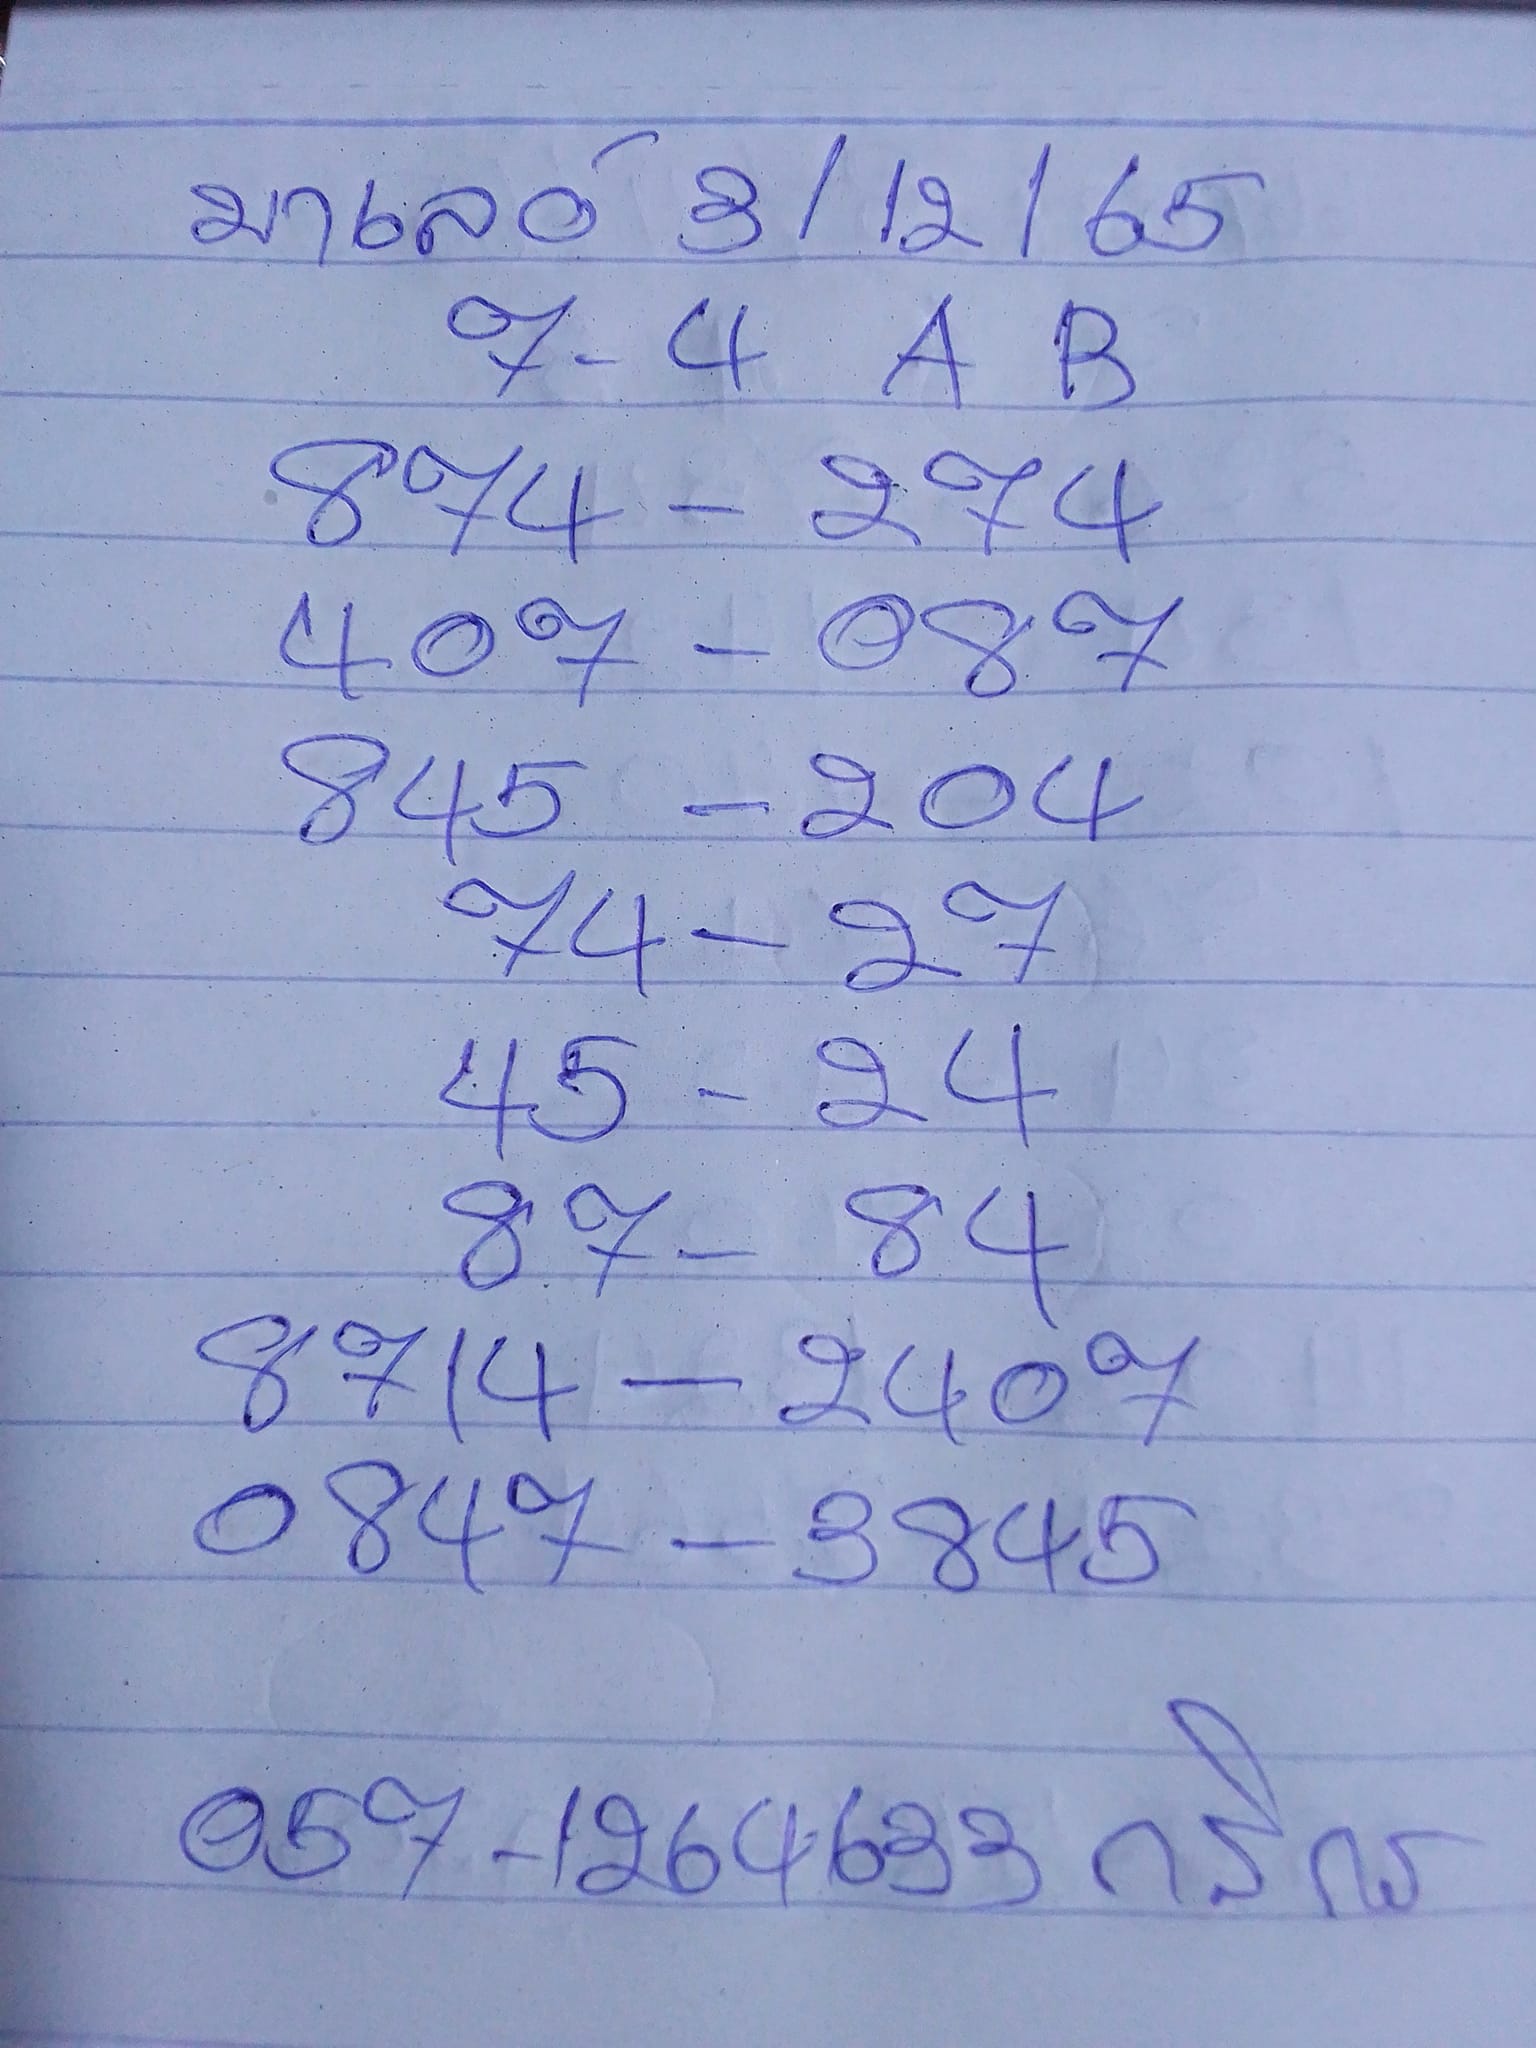 มาเลย์ 3/12/65
7-4 A B
874 - 274
407 - 087
845 - 204
74 - 27
45 - 24
87 - 84
8714 - 2407
0847 - 3845
057-1264633 กสิกร